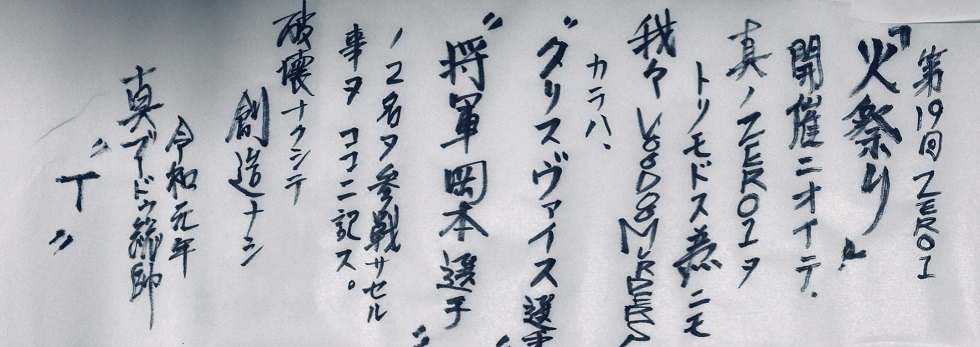 第19回ZERO1
『火祭り』
開催ニオイテ、
真ノZERO1ヲ
トリモドス為ニモ
我々VooDooMURDERS
カラハ、
"グリスヴァイス選手"
"将軍岡本選手"
ノ2名ヲ参戦サセル
事ヲココニ記ス。
破壊ナクシテ
創造ナシ
令和元年
真ブードゥ総帥
"T"